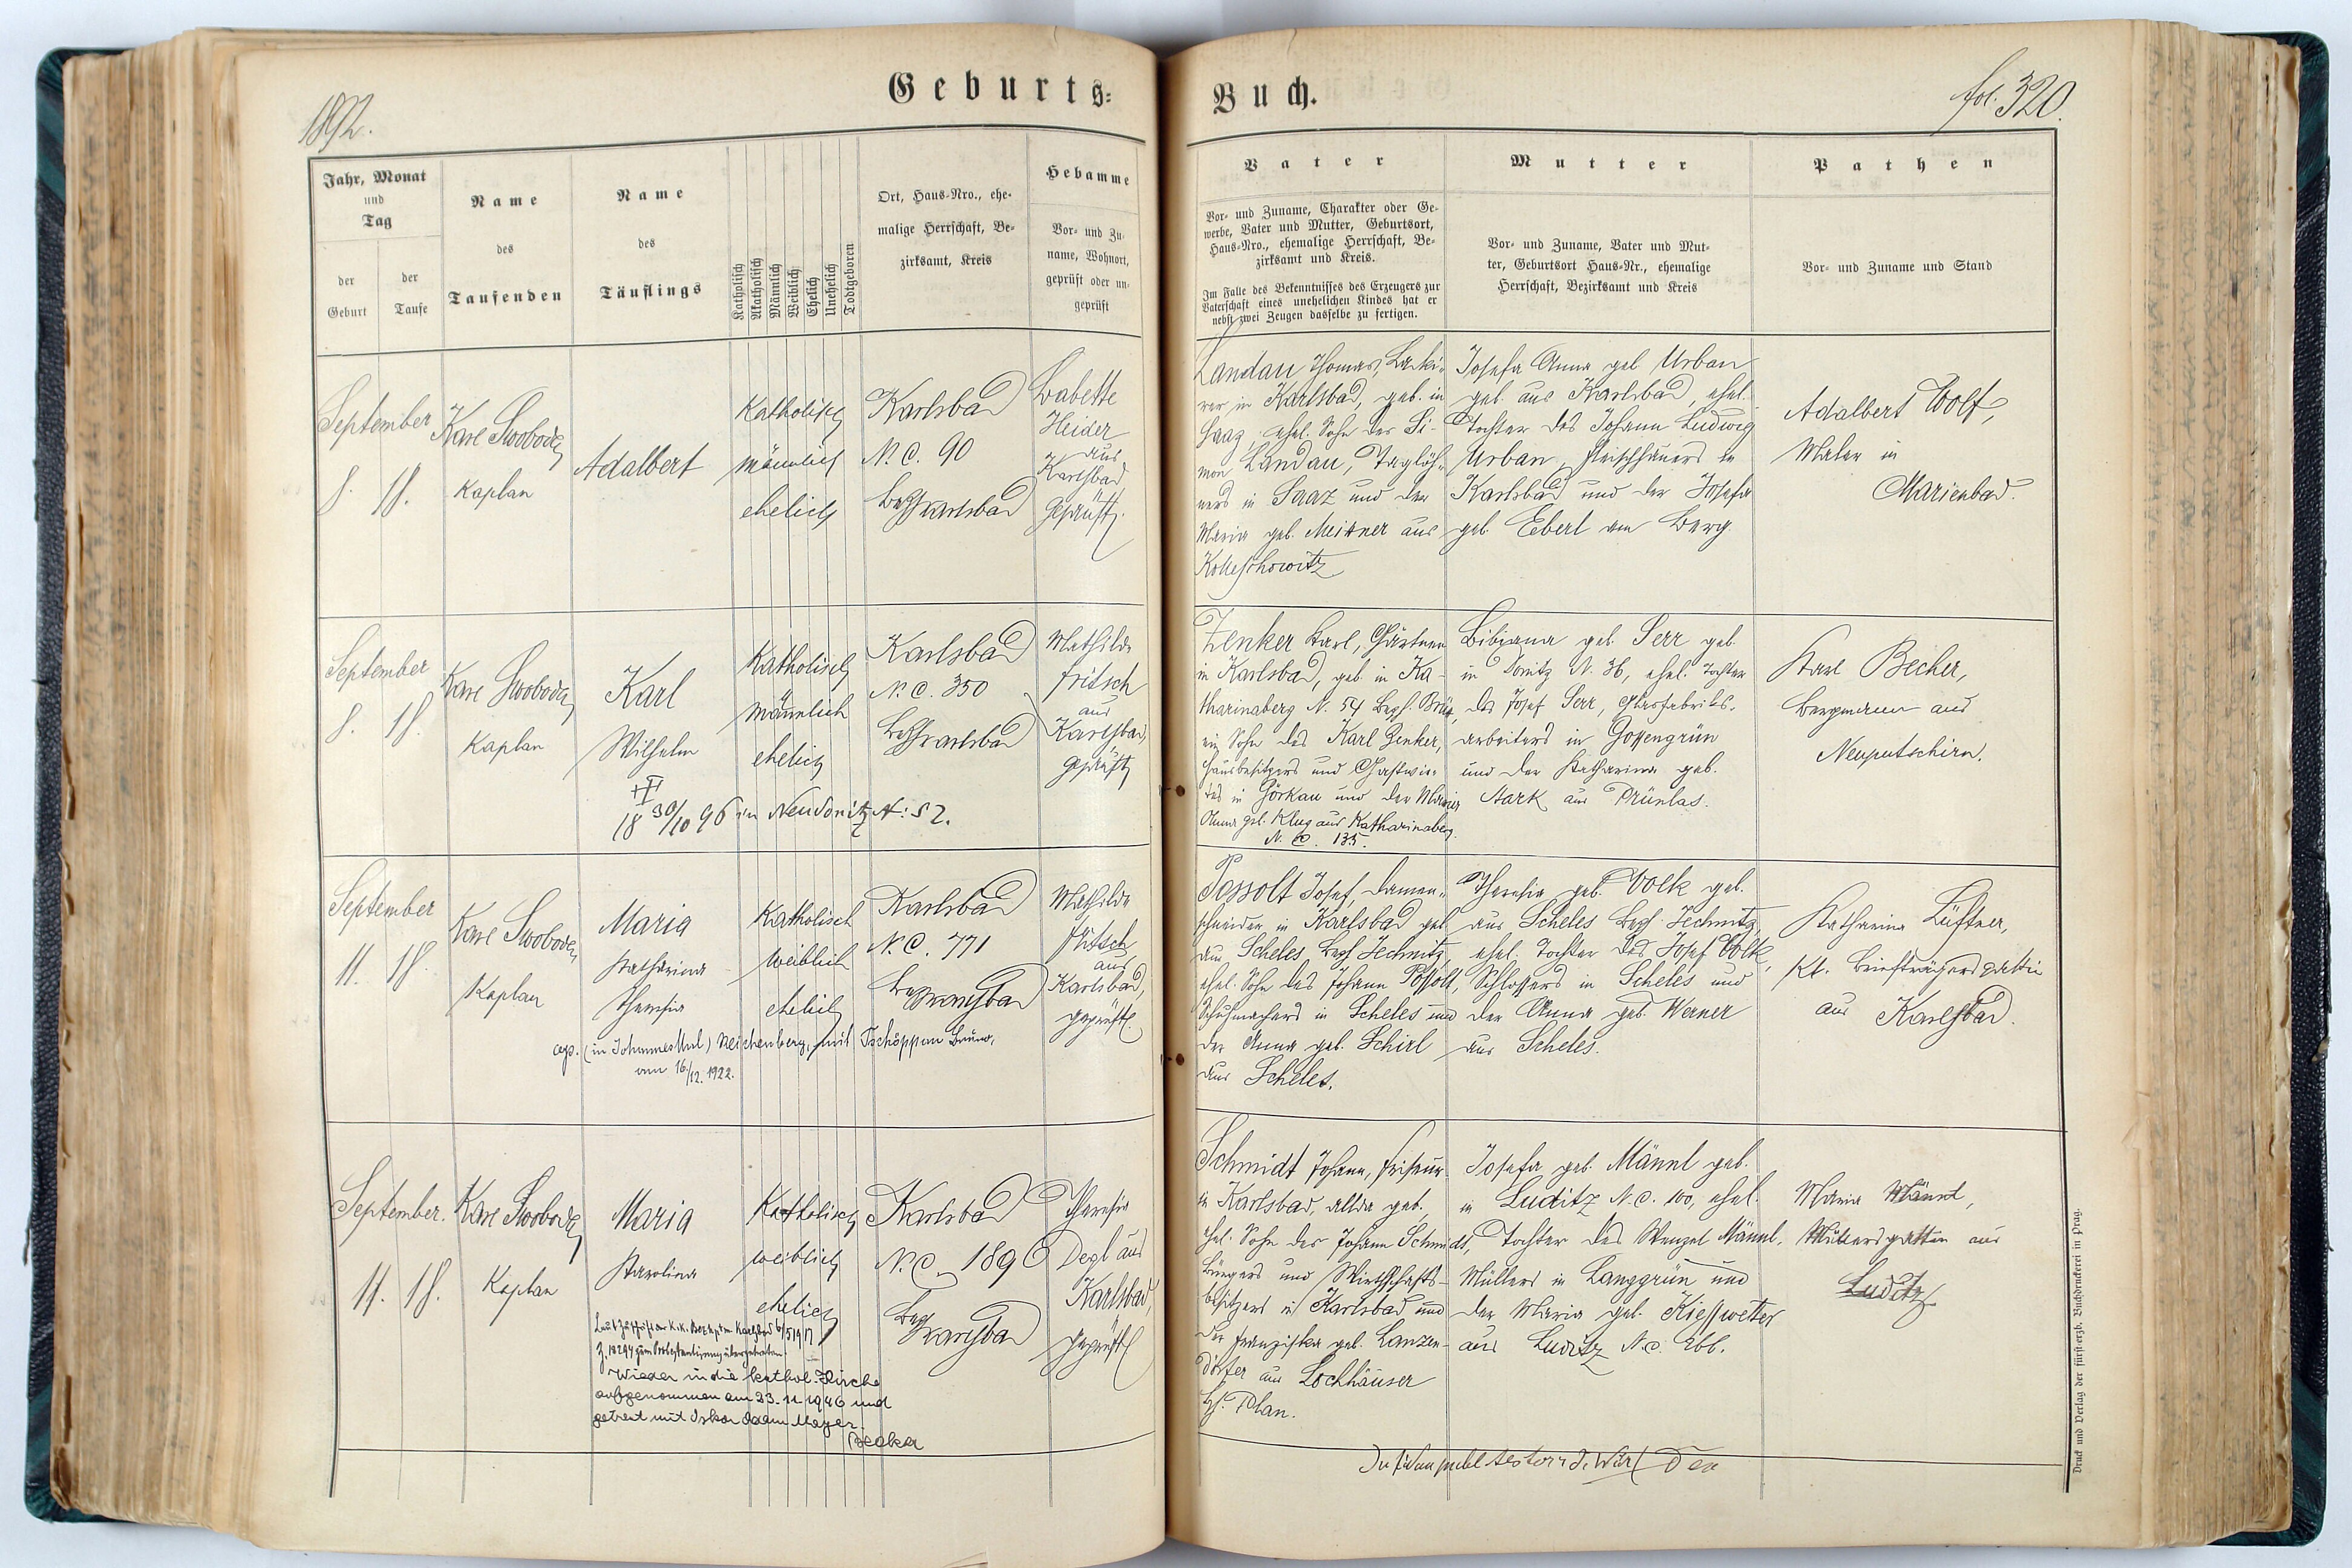 1892.
Geburts-
Jahr, Monat
und
Tag
der
Geburt
der
Taufe
Name
des
Taufenden
Name
des
Täuflings
Katholisch
Akatholisch
Männlich
Weiblich
Ehelich
Unehelich
Todtgeboren
Ort, Haus-Nro., ehe-
malige Herrschaft, Be-
zirksamt, Kreis
Hebamme
Vor- und Zu-
name, Wohnort,
geprüft oder un-
geprüft
September
8. 18.
Karl Swoboda
Kaplan
Adalbert
Katholisch
männlich
ehelich
Karlsbad
N. C. 90
Bez Karlsbad
Babette
Heider
aus
Karlsbad
geprüft.
September
8. 18.
Karl Swoboda
Kaplan
Karl
Wilhelm
18 30/10 96 in Neudonitz N: 52.
Katholisch
männlich
ehelich
Karlsbad
N. C. 350
Bez Karlsbad
Mathilde
Fritsch
aus
Karlsbad,
geprüft
September
11. 18.
Karl Swoboda
Kaplan
Maria
Katharina
Theresia
cop. (in Reichenberg, mit Tschöppan Bruno,
am 16./12. 1922.
Katholisch
weiblich
ehelich
Karlsbad
N. C. 771
Bez Karlsbad
Mathilde
Fritsch
aus
Karlsbad,
geprüft.
September.
11. 18.
Karl Swoboda
Kaplan
Maria
Karolina
Katholisch
weiblich
ehelich
Karlsbad
N. C. 1896
Bez Karlsbad
Theresia
Degl aus
Karlsbad,
geprüft
Laut Zuschrift der k.k. Bez Karlsbad 6/5 1917
Z. 18294 zum Protestantismus übergetreten.
Wieder in die kathol. Kirche
aufgenommen am 23. 11. 1940 und
getraut mit Oskar Adam Mayer.
Buch.
fol. 320.
Vater
Vor- und Zuname, Charakter oder Ge-
werbe, Vater und Mutter, Geburtsort,
Haus-Nro., ehemalige Herrschaft, Be-
zirksamt und Kreis.
Im Falle des Bekenntnisses des Erzeugers zur
Vaterschaft eines unehelichen Kindes hat er
nebst zwei Zeugen dasselbe zu fertigen.
Mutter
Vor- und Zuname, Vater und Mut-
ter, Geburtsort Haus-Nr., ehemalige
Herrschaft, Bezirksamt und Kreis
Pathen
Vor- und Zuname und Stand
Landau Thomas, Lacki-
rer in Karlsbad, geb. in
Saaz, ehel. Sohn des Si-
mon Landau, Taglöh-
ners in Saaz und der
Maria geb. Meixner aus
Kolleschowitz
Josefa Anna geb Urban
geb. aus Karlsbad, ehel.
Tochter des Johann Ludwig
Urban, Fleischhauers in
Karlsbad und der Josefa
geb. Eberl am Berg.
Adalbert Wolf,
Maler in
Marienbad.
Zenker Karl, Gärtner
in Karlsbad, geb. in Ka-
tharinaberg N. 54 Bezh. Brüx,
ein Sohn des Karl Zenker,
Hausbesitzers und Gastwir-
tes in Görkau und der Maria
Anna geb. Klug aus Katharinaberg
N. C. 135.
Bibiana geb. Serr geb.
in Donitz N. 36, ehel. Tochter
des Josef Serr, Glasfabriks-
arbeiters in Gossengrün
und der Katharina geb.
Stark aus Prünlas.
Karl Becher,
Bergmann aus
Neuputschirn.
Possolt Josef, Damen-
schneider in Karlsbad geb
aus Scheles Bezh Jechnitz,
ehel. Sohn des Johann Possolt,
Schuhmachers in Scheles und
der Anna geb. Schirl
aus Scheles.
Theresia geb. Volk geb.
aus Scheles Bezh. Jechnitz,
ehel. Tochter des Josef Volk,
Schlossers in Scheles und
der Anna geb. Werner
aus Scheles.
Katharina Lüftner,
kk. Briefträgersgattin
aus Karlsbad.
Schmidt Johann, Friseur
in Karlsbad, allda geb.,
ehel. Sohn des Johann Schmidt,
Bürgers und Wirthschafts-
besitzers in Karlsbad und
der Franziska geb. Lanzen-
dörfer aus Lochhäuser
Bh. Plan.
Josefa geb. Männl geb.
in Luditz N. C. 100, ehel.
Tochter des Wenzel Männl,
Müllers in Langgrün und
der Maria geb. Kiesswetter
aus Luditz N. C.
Maria Männl,
Müllersgattin aus
Luditz
Druck und Verlag der fürst-erzb. Buchdruckerei in Prag.